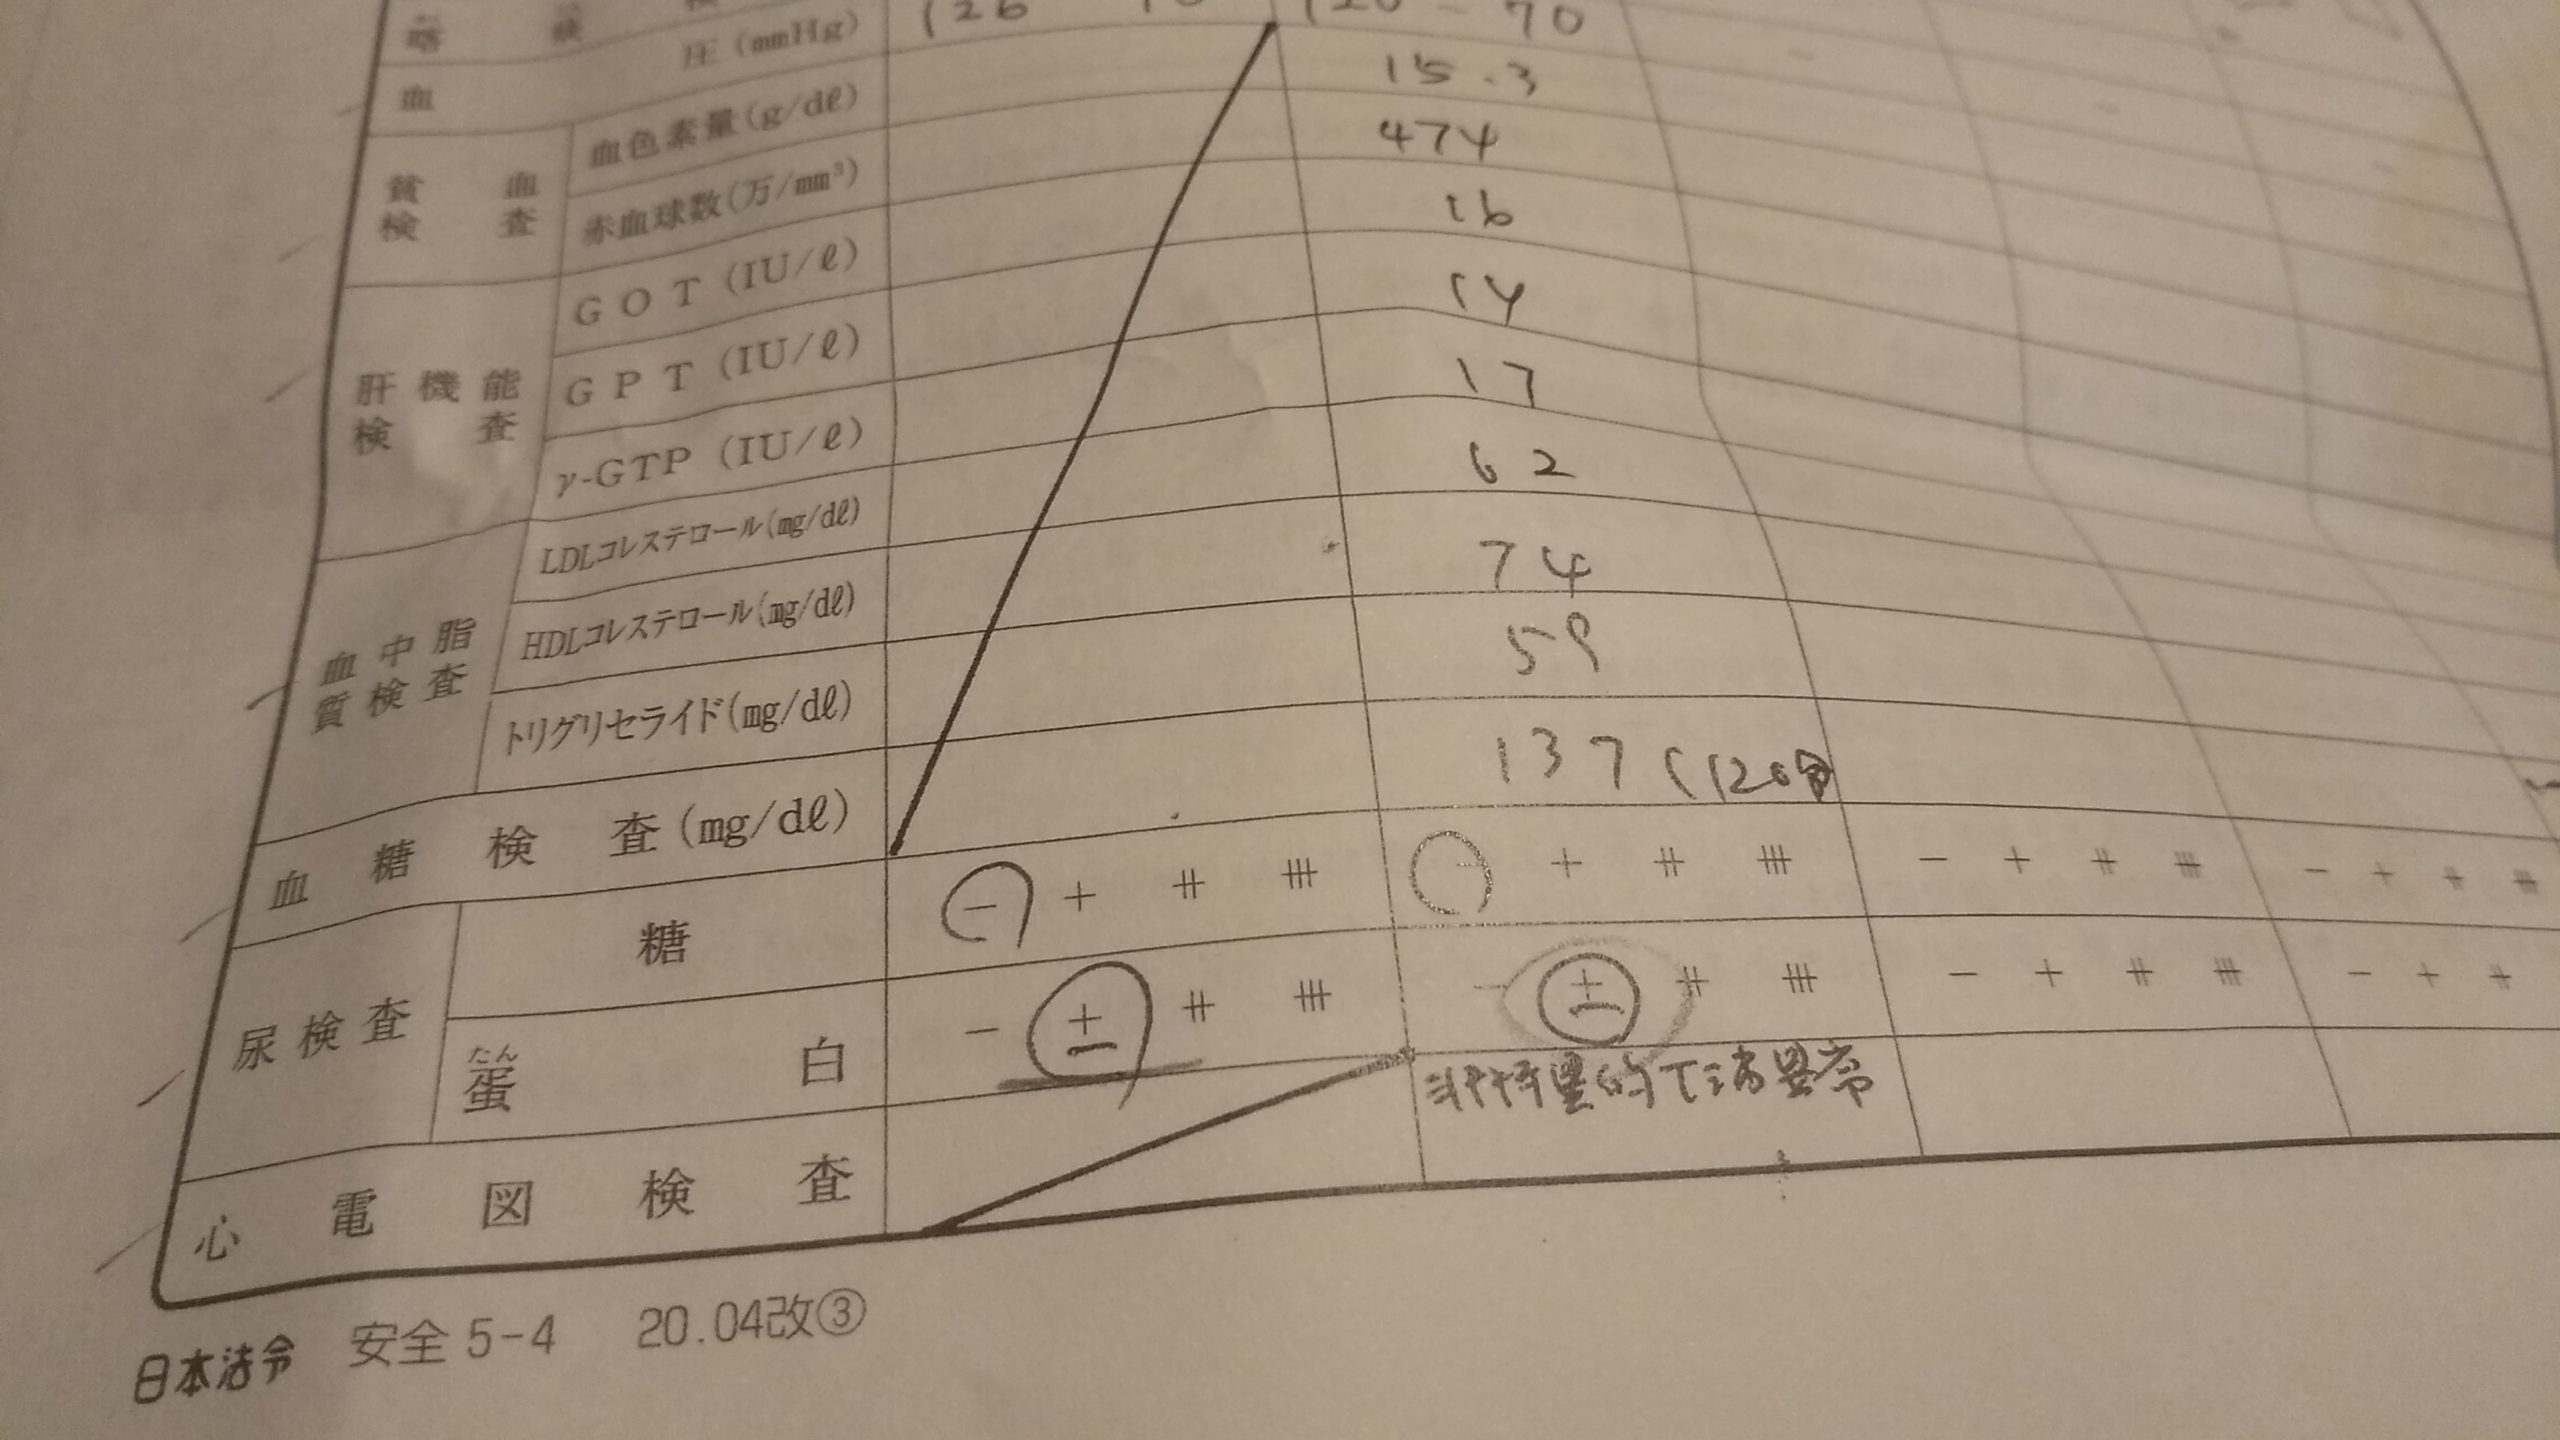 喀痰検
126 70 120 - 70
血圧(mmHg)
貧血検査
血色素量(g/dℓ) 15.3
赤血球数(万/mm³) 474
肝機能検査
GOT(IU/ℓ) 16
GPT(IU/ℓ) 14
γ-GTP(IU/ℓ) 17
血中脂質検査
LDLコレステロール(mg/dℓ) 62
HDLコレステロール(mg/dℓ) 74
トリグリセライド(mg/dℓ) 59
血糖検査(mg/dℓ) 137 (120分
尿検査
糖 - + ⧺ ⧻ - + ⧺ ⧻ - + ⧺ ⧻ - + ⧺ ⧻
たん
蛋白 - ± ⧺ ⧻ - ± ⧺ ⧻ - + ⧺ ⧻ - + ⧺
心電図検査 非特異的T波異常
日本法令 安全5-4 20.04改③